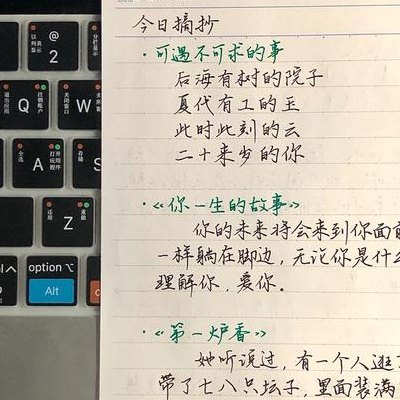 今日摘抄
·可遇不可求的事
后海有树的院子
夏代有工的玉
此时此刻的云
二十来岁的你
·《你一生的故事》
你的未来将会来到你面前
一样躺在脚边，无论你是什么
理解你，爱你。
·《第一炉香》
她听说过，有一个人逛了
带了七八只坛子，里面装满
@
2
Q
W
A
S
Z
option
Alt